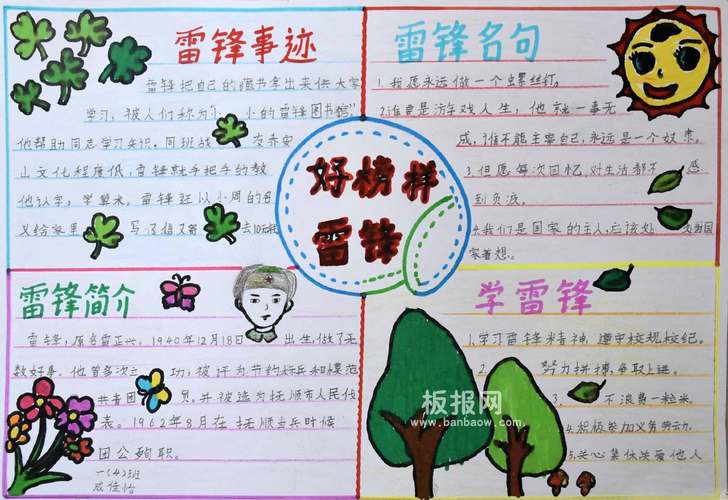 雷锋事迹
雷锋把自己的藏书拿出来供大家
学习，被人们称为"小 小的雷锋图书馆"
他帮助同志学习知识，同班战 友乔安
山文化程度低，雷锋就手把手的教
他认字，学算术。雷锋还以小周的名
义给家里 写了信又寄 去10元钱
雷锋名句
1.我愿永远做一个螺丝钉。
2.谁要是游戏人生，他就一事无
成，谁不能主宰自己，永远是一个奴隶。
3.但愿每次回忆，对生活都不 感
到负疚。
4.我们是国家的主人，应该处 为国
家着想。
好榜样
雷锋
雷锋简介
雷锋，原名雷正兴。1940年12月18日 出生，做了无
数好事。他曾多次立 功，被评为节约标兵和模范
共青团 员，并被选为抚顺市人民代
表。1962年8月在抚顺当兵时候
因公殉职。
一(4)班
佳怡
学雷锋
1.学习雷锋精神，遵守校规校纪。
2. 努力拼搏，争取上进。
3. 不浪费一粒米。
4.积极参加义务劳动。
5.关心集体关爱他人
板报网
www.banbaow.com